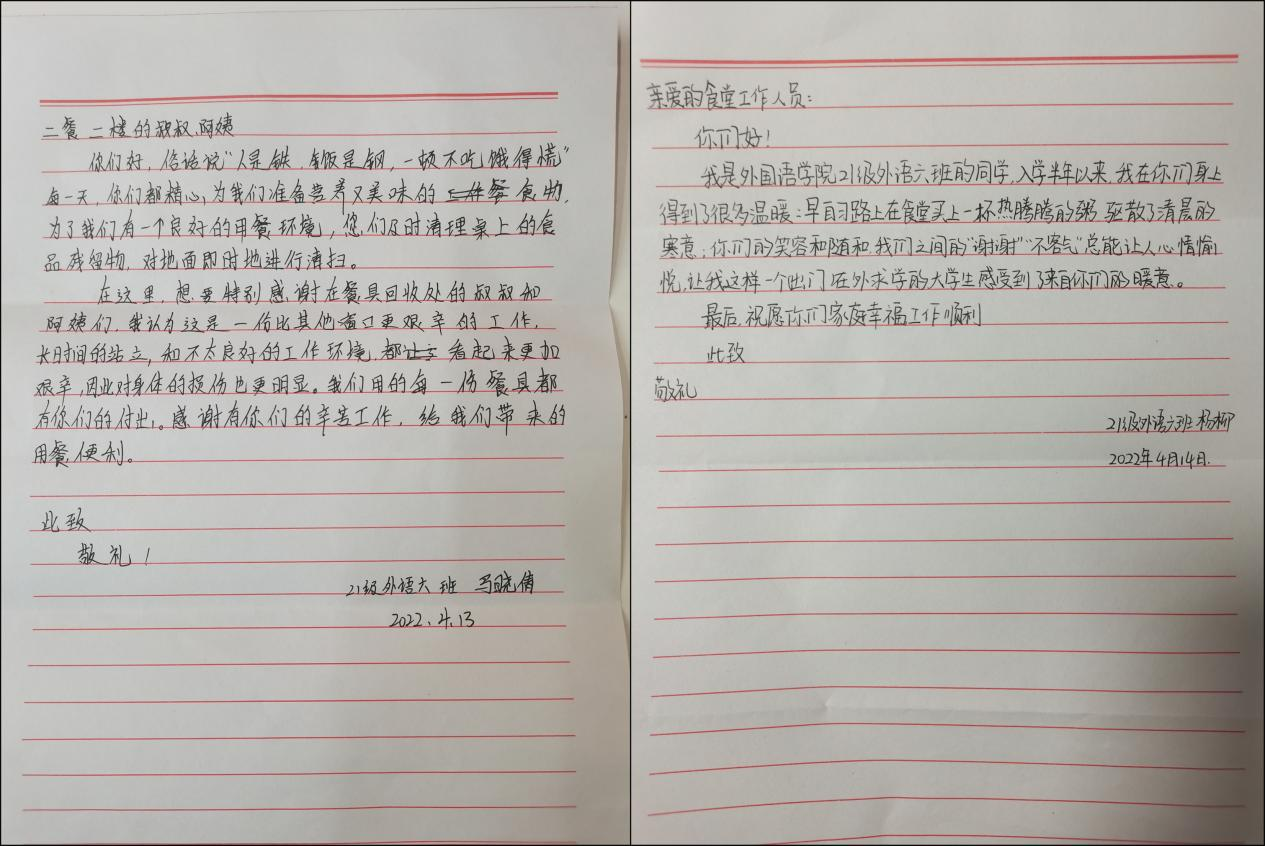 二餐二楼的叔叔、阿姨
你们好，俗话说"人是铁，饭是钢，一顿不吃饿得慌"
每一天，你们都精心为我们准备营养又美味的食物，
为了我们有一个良好的用餐环境，您们及时清理桌上的食
品残留物，对地面即时地进行清扫。
在这里，想要特别感谢在餐具回收处的叔叔和
阿姨们，我认为这是一份比其他窗口更艰辛的工作，
长时间的站立，和不太良好的工作环境，看起来更加
艰辛，因此对身体的损伤也更明显。我们用的每一份餐具都
有你们的付出。感谢有你们的辛苦工作，给我们带来的
用餐便利。
此致
敬礼！
21级外语六班 马晓倩
2022.4.13
亲爱的食堂工作人员：
你们好！
我是外国语学院21级外语六班的同学，入学半年以来，我在你们身上
得到了很多温暖：早自习路上在食堂买上一杯热腾腾的粥，驱散了清晨的
寒意；你们的笑容和随和，我们之间的"谢谢""不客气"总能让人心情愉
悦，让我这样一个出门在外求学的大学生感受到了来自你们的暖意。
最后，祝愿你们家庭幸福工作顺利
此致
敬礼
21级外语六班 杨柳
2022年4月14日.